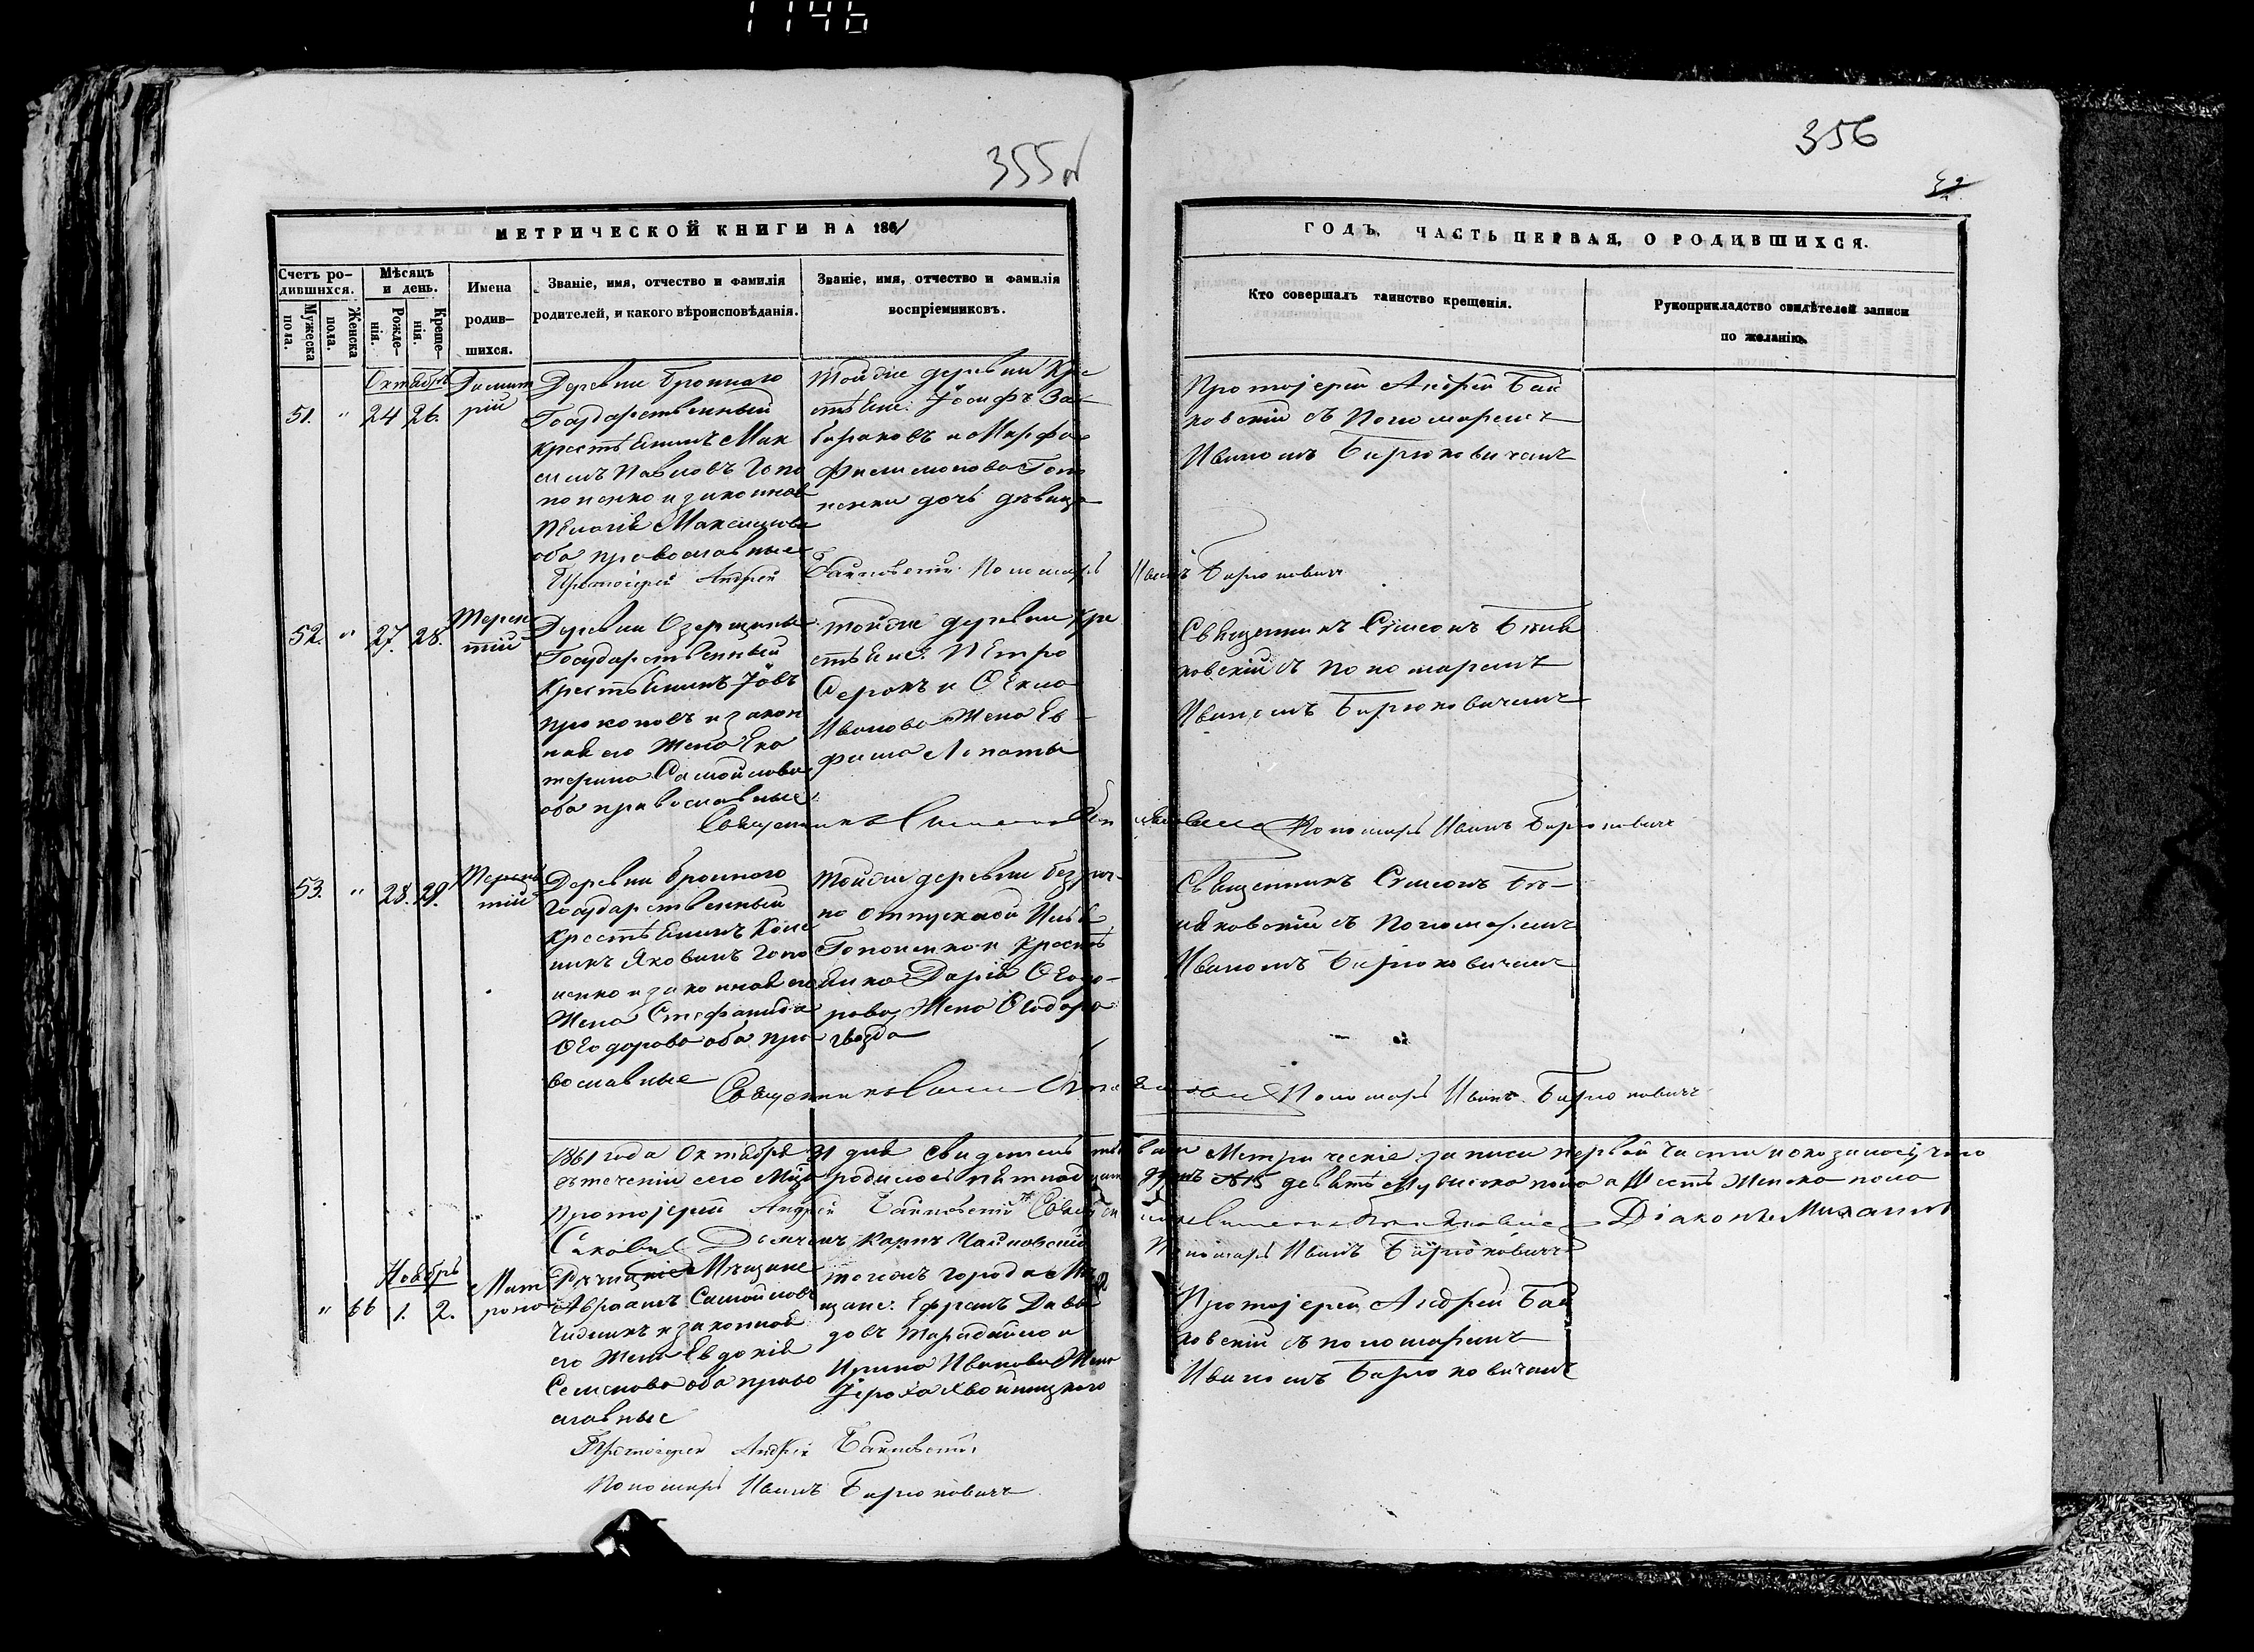 1146
355
356
МЕТРИЧЕСКОЙ КНИГИ НА 1861
ГОДЪ, ЧАСТЬ ПЕРВАЯ, О РОДИВШИХСЯ.
Счетъ ро-
дившихся.
Мужеска
пола.
Женска
пола.
Мѣсяцъ
и день.
Рожде-
нія.
Креще-
нія.
Имена
родив-
шихся.
Званіе, имя, отчество и фамилія
родителей, и какого вѣроисповѣданія.
Званіе, имя, отчество и фамилія
воспріемниковъ.
Кто совершалъ таинство крещенія.
Рукоприкладство свидѣтелей записи
по желанію.
Октябрь
51. " 24 26.
Димит
рій
Деревни Броннаго
Государственный
крестьянинъ Мак
симъ Павловъ Гопо
ненко и законная
Пелагія Максимова
оба православные
Тойже деревни Кре
стьяне: Іосифъ
и Марфа
Филимонова Гопо
ненки дочь дѣвица
Протоіерей Андрей Бай
ковскій съ Пономаремъ
Иваномъ Бирюковичемъ
Протоіерей Андрей Байковскій Пономарь Иванъ Бирюковичъ
52. " 27. 28.
Терен
тій
Деревни Озерщины
Государственный
Крестьянинъ Іовъ
Прокоповъ и закон
ная его Жена Ека
терина Самойлова
оба православные
тойже деревни Кре
стьяне: Петро
и Ѳекла
Иванова Жена Ев
фима Лопаты
Священникъ Сѵмеонъ
съ пономаремъ
Иваномъ Бирюковичемъ
Священникъ Пономарь Иванъ Бирюковичъ
53. " 28. 29.
Терен
тій
Деревни Броннаго
Государственный
Крестьянинъ
Яковинъ Гопо
ненко и законная его
Жена Стефанида
Ѳеодорова оба пра
вославные
Тойже деревни безсроч
но отпускной Илья
Гопоненко и Кресть
янка Дарія Ѳеодо-
рова Жена Ѳеодора
Гвозда
Священникъ Сѵмеонъ
съ Пономаремъ
Иваномъ Бирюковичемъ
Священникъ Пономарь Иванъ Бирюковичъ
1861 года Октября 31 дня свидетельствовали Метрическіе записи первой части и оказалось, что
въ теченіи сего Мца родилось пятнадцать душъ №15 девять Мужеска пола а Шесть Женска пола
Протоіерей Андрей Байковскій Діаконъ Михаилъ
Карпъ Чайковскій Пономарь Иванъ Бирюковичъ
Ноябрь
" 66 1. 2.
Мат
рона
Мѣщане
Авраамъ Самойловъ
и законная
его Жена Евдокія
Семенова оба право
славные
тогожъ города Мѣ
щане: Ефремъ Давы
довъ и
Ирина Иванова Жена
Протоіерей Андрей Бай
ковскій съ пономаремъ
Иваномъ Бирюковичемъ
Протоіерей Андрей Байковскій
Пономарь Иванъ Бирюковичъ